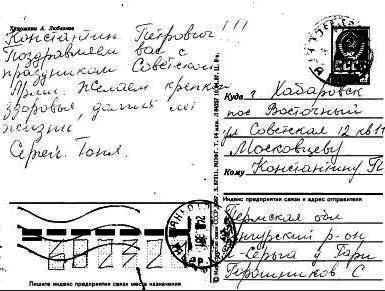 Художник А. Любезнов
Константин Петрович!!!
Поздравляем вас с
праздником Советской
Армии. Желаем крепкого
здоровья, долгих лет
жизни.
Сергей. Тоня.
Куда г. Хабаровск
пос Восточный
ул Советская 12 кв
Московцеву
Кому Константину П
Индекс предприятия связи и адрес отправителя
Пермская обл
р-он
Горошников С
Пишите индекс предприятия связи места назначения